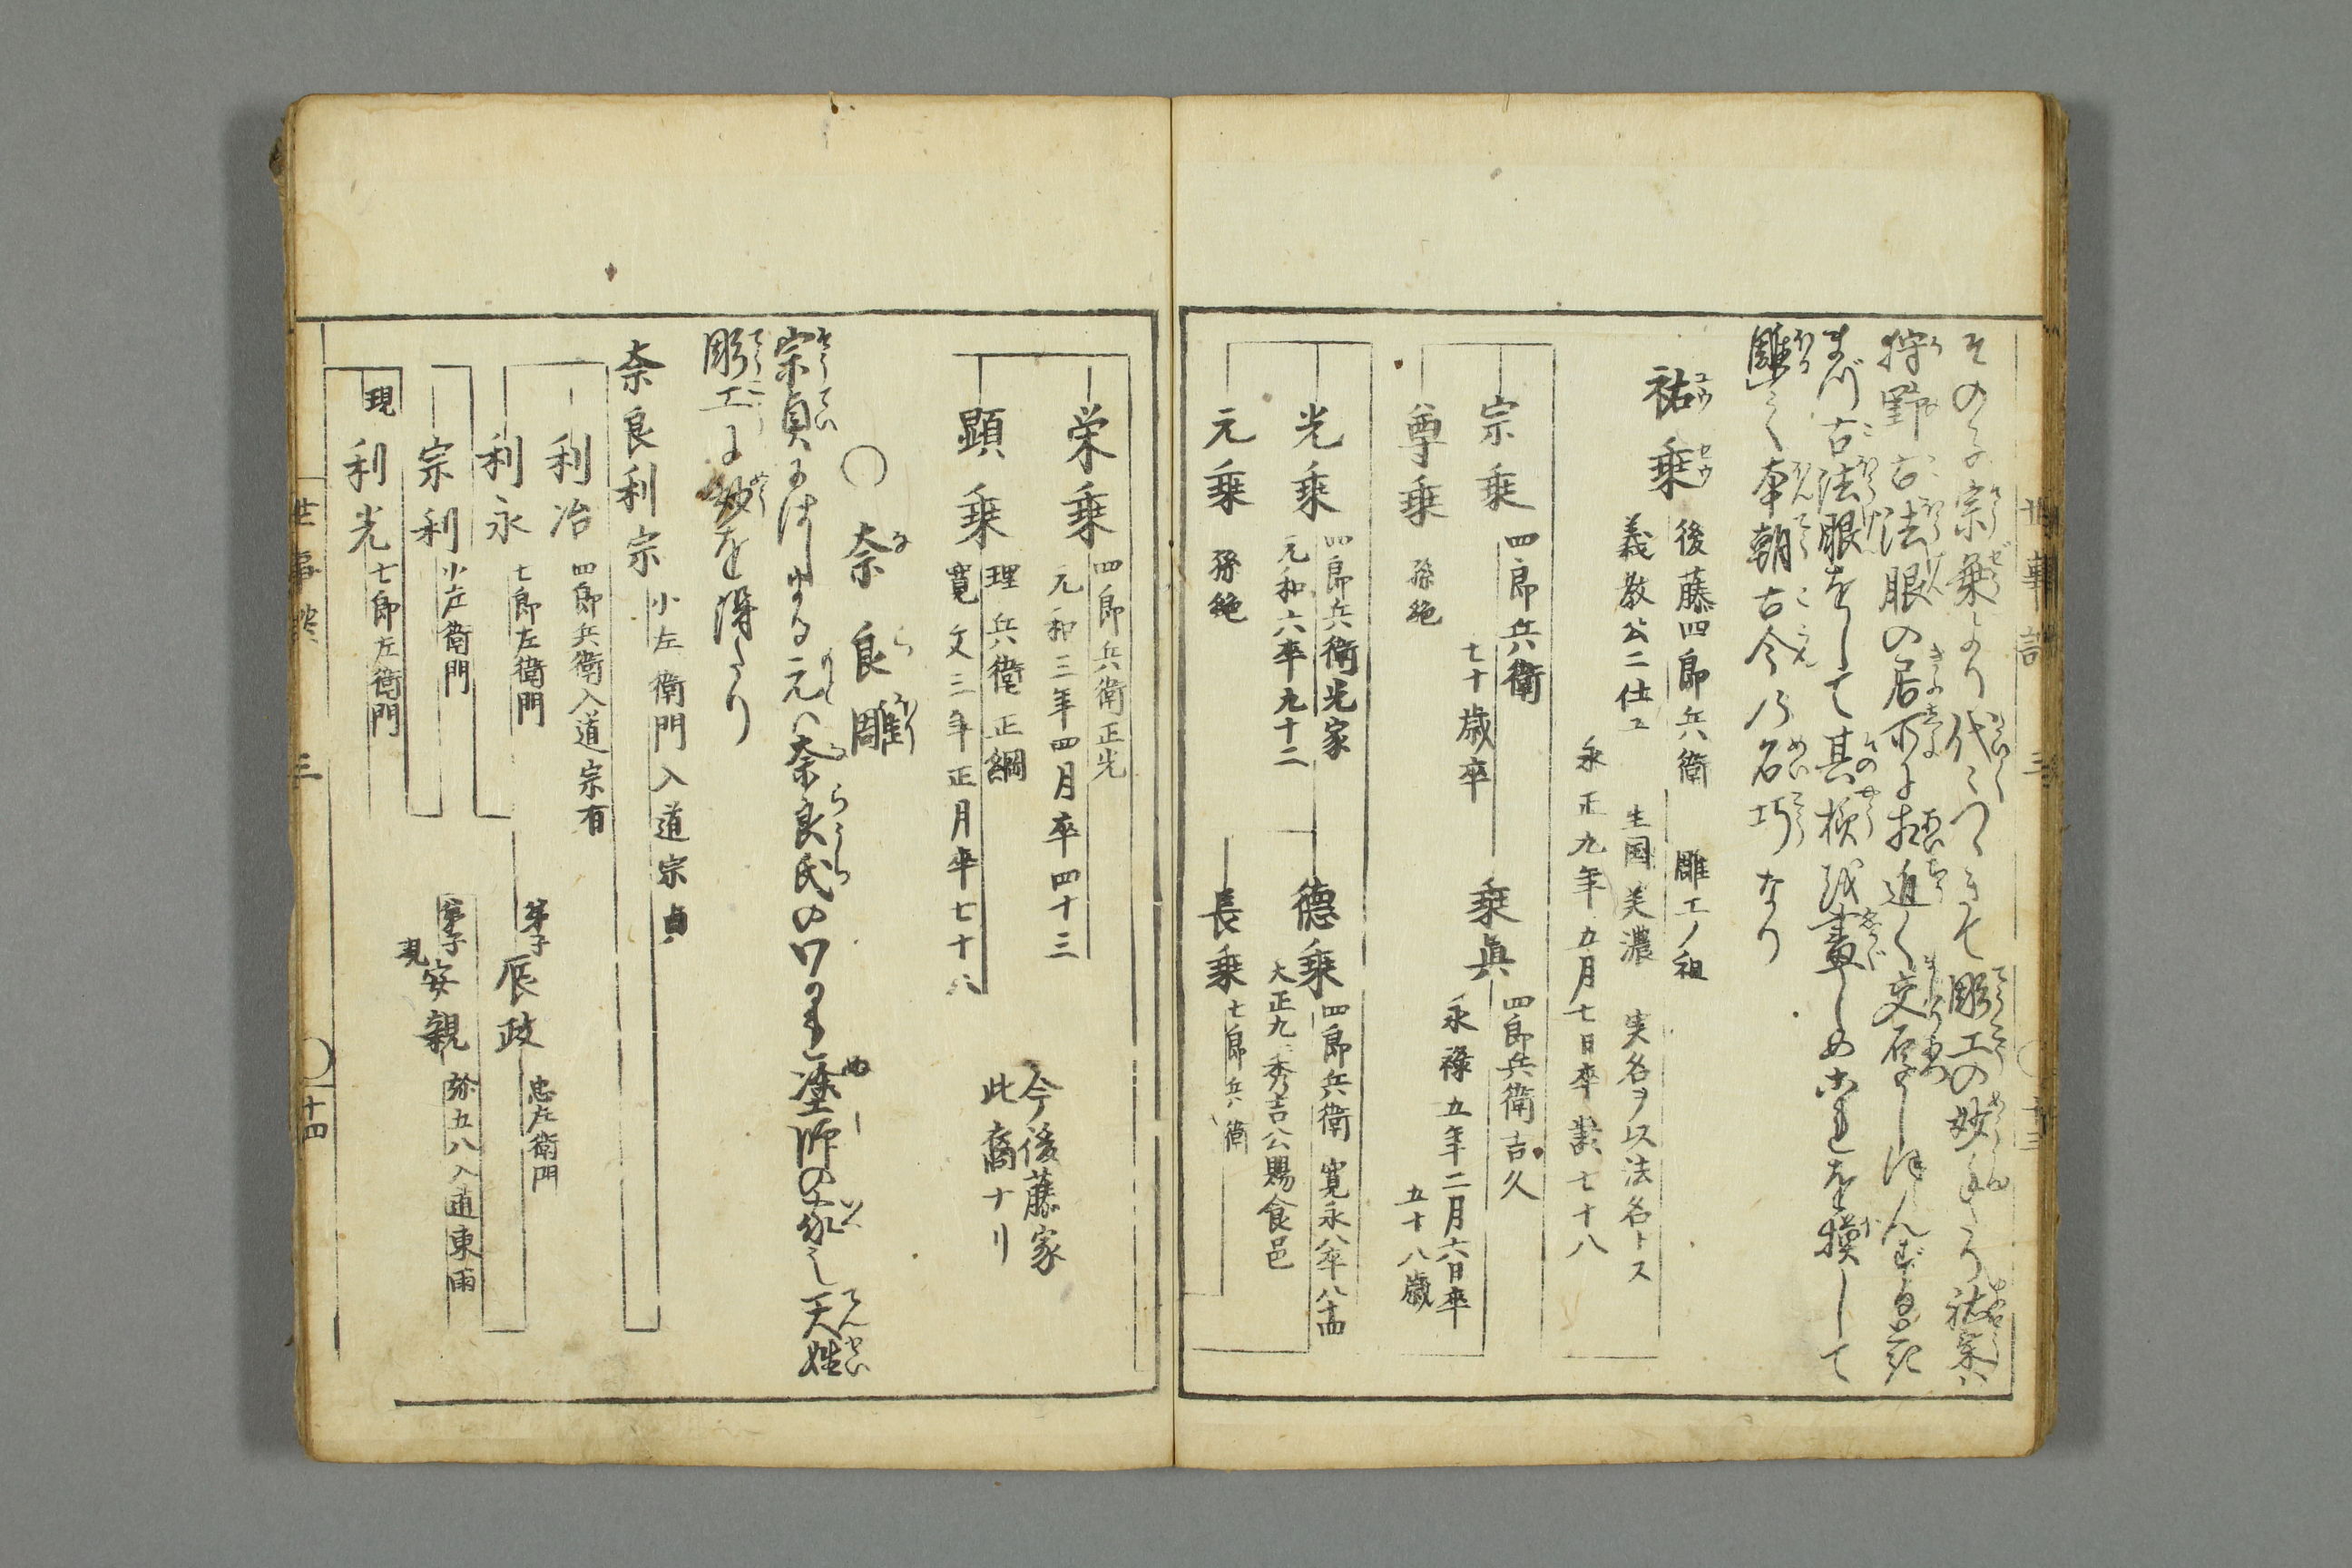 その子宗乗より代々つゞきて彫工の妙手たり祐乗ハ
狩野古法眼の居所に相近く交厚しほんずる
まづ古法眼をして其様を畫しめこれを摸して
雕て本朝古今乃名巧なり
祐乗 後藤四郎兵衛 雕工ノ祖
義教公ニ仕ユ 生国美濃 実名ヲ以法名トス
永正九年五月七日卒歳七十八
宗乗 四郎兵衛
七十歳卒
乗眞 四郎兵衛吉久
永禄五年二月六日卒
五十八歳
尊乗 孫絶
光乗 四郎兵衛光家
元和六卒九十二
徳乗 四郎兵衛 寛永八卒八十四
大正九 秀吉公賜食邑
元乗 孫絶
長乗 七郎兵衛
栄乗 四郎兵衛正光
元和三年四月卒四十三
顕乗 理兵衛正綱
寛文三年正月卒七十八
今後藤家
此裔ナリ
○奈良雕
宗貞にはじまる元ハ奈良氏のわかれ塗師の家也天姓
彫工に妙を得たり
奈良利宗 小左衛門入道宗貞
利治 四郎兵衛入道宗有
利永 七郎左衛門
弟子 辰政 忠左衛門
宗利 小左衛門
弟子 安親 弥五八入道東雨
現 利光 七郎左衛門
世事談 三 ○十四